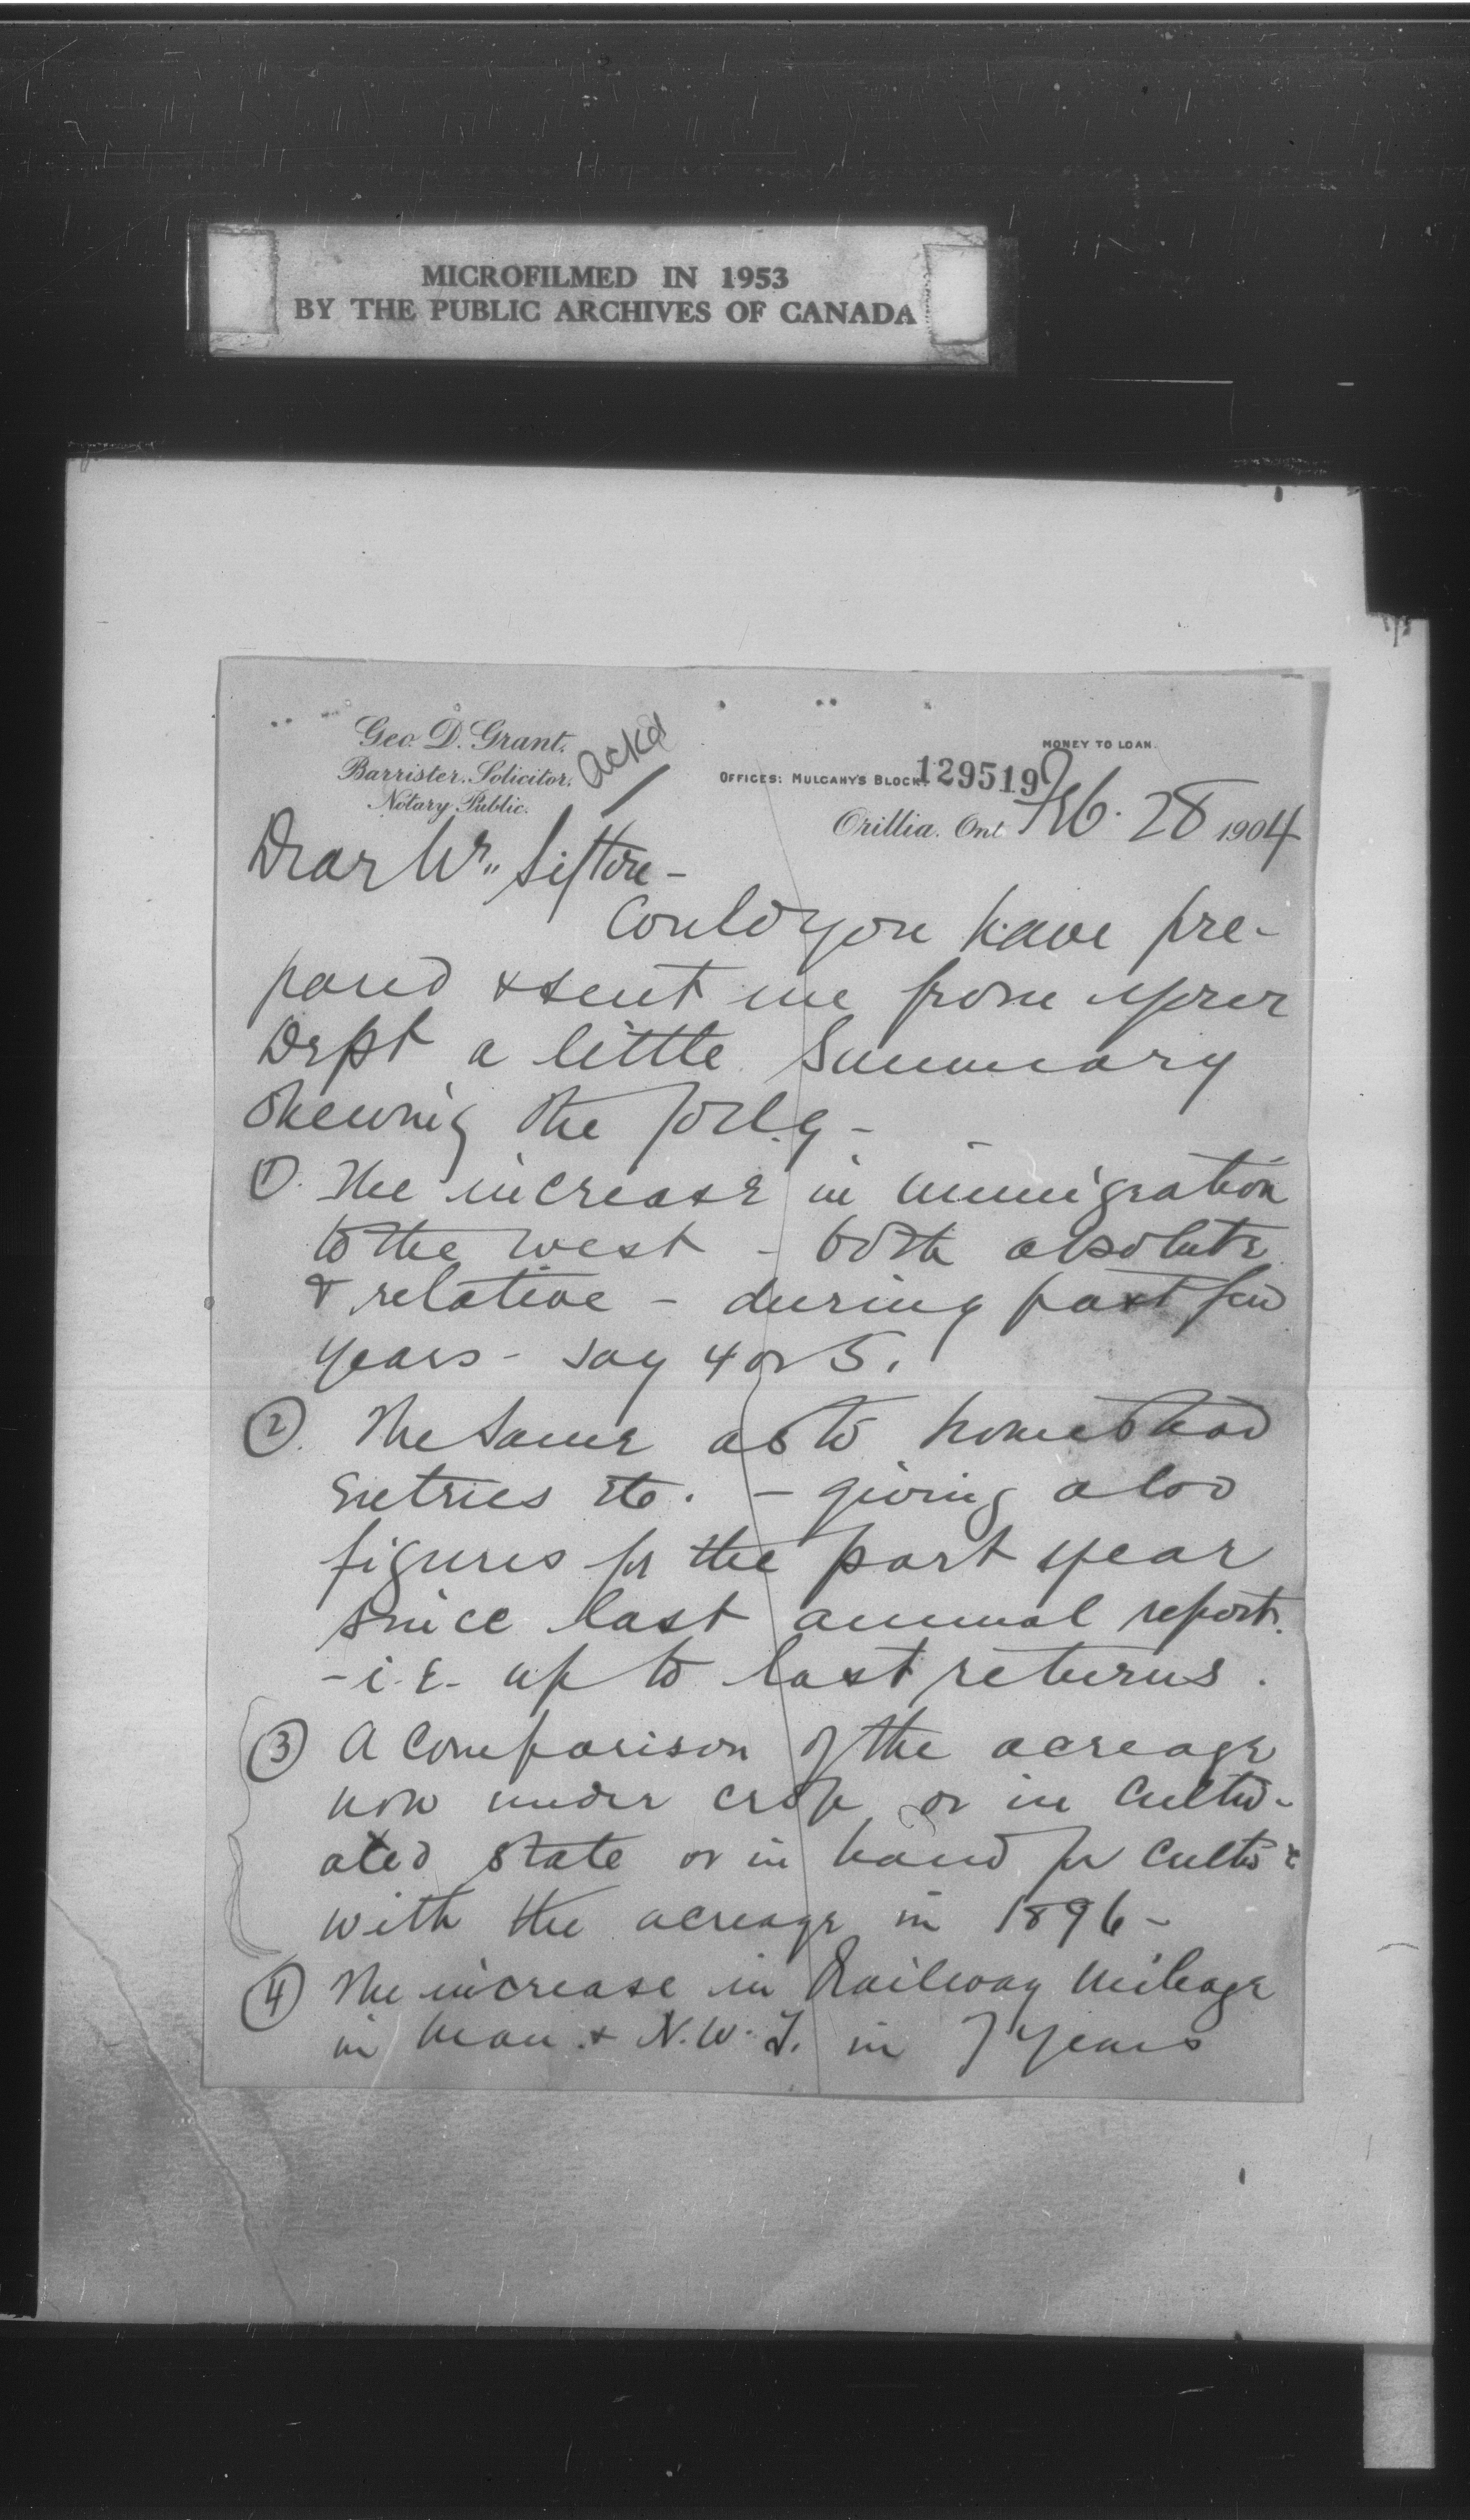 MICROFILMED IN 1953
BY THE PUBLIC ARCHIVES OF CANADA
Geo. D. Grant.
Barrister. Solicitor.
Notary Public.
Ackd
MONEY TO LOAN.
OFFICES: MULCAHY'S BLOCK.
129519
Orillia. Ont. Feb. 28 1904
Dear Mr. Sifton -
Could you have pre-
pared & sent me from your
Dept a little summary
shewing the follg -
1). The increase in immigration
to the west - both absolute
& relative - during past few
years - say 4 or 5.
2). The same as to homestead
entries etc. - giving also
figures for the part year
since last annual report.
- i.e. up to last returns.
3) A comparison of the acreage
now under crop or in cultiv-
ated state or in hand for
with the acreage in 1896 -
4) The increase in Railway mileage
in Man. & N.W.T. in 7 years